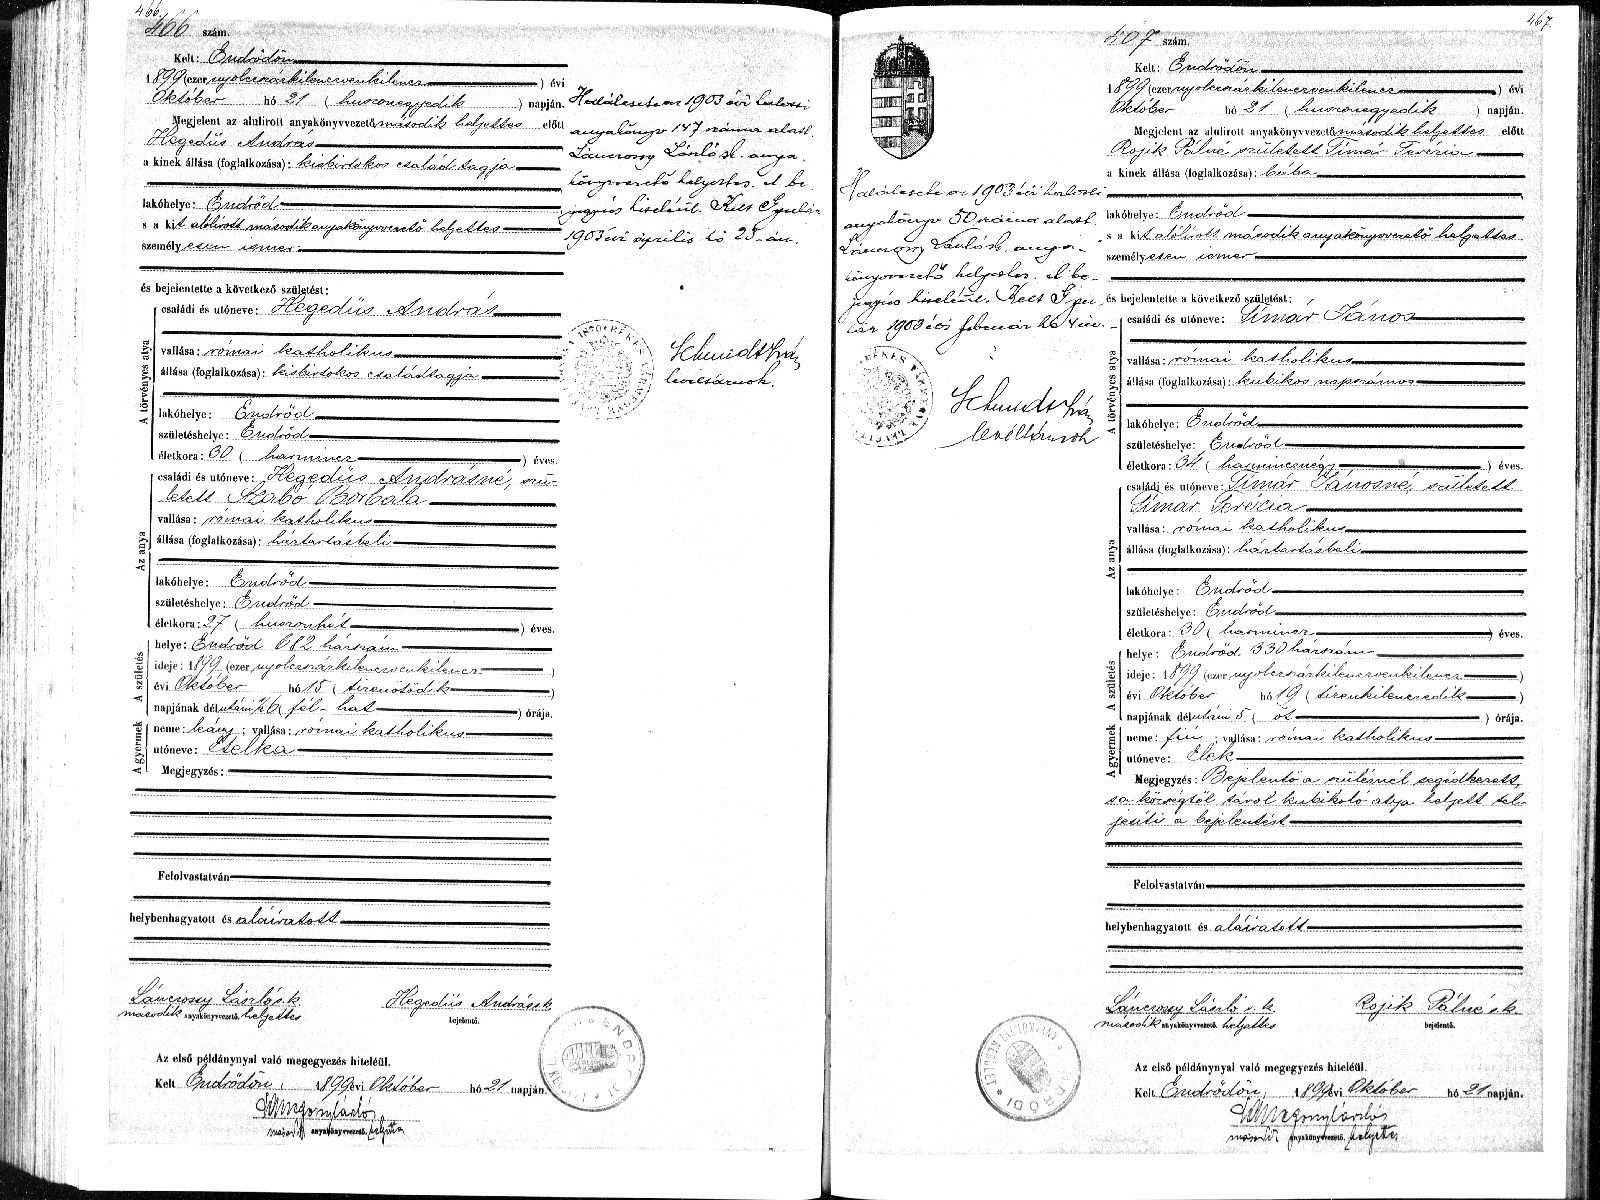 466.
466 szám.
Kelt: Endrődön
1899 (ezer nyolczszázkilenczvenkilencz ) évi
Október hó 21 ( huszonegyedik ) napján.
Megjelent az alulirott anyakönyvvezető második helyettes előtt
Hegedüs András
a kinek állása (foglalkozása): kisbirtokos család tagja
lakóhelye: Endrőd
s a kit alólirott második anyakönyvvezető helyettes
személyesen ismer
és bejelentette a következő születést:
A törvényes atya
családi és utóneve: Hegedüs András
vallása: római katholikus
állása (foglalkozása): kisbirtokos családtagja
lakóhelye: Endrőd
születéshelye: Endrőd
életkora: 30 ( harmincz ) éves.
Az anya
családi és utóneve: Hegedüs Andrásné, szü-
letett Szabó Borbála
vallása: római katholikus
állása (foglalkozása): háztartásbeli
lakóhelye: Endrőd
születéshelye: Endrőd
életkora: 27 ( huszonhét ) éves.
A születés
helye: Endrőd 682 házszám
ideje: 1899 (ezer nyolczszázkilenczvenkilencz )
évi Október hó 15 ( tizenötödik )
napjának délutáni ½6 ( fél-hat ) órája.
A gyermek
neme: leány; vallása: római katholikus
utóneve: Etelka
Megjegyzés:
Felolvastatván
helybenhagyatott és aláiratott
Lánczossy László s.k. Hegedüs András s.k.
második anyakönyvvezető. helyettes bejelentő.
Az első példánynyal való megegyezés hiteléül.
Kelt Endrődön, 1899 évi Október hó 21 napján.
második anyakönyvvezető, helyettes
Halálesete az 1903 évi halotti
anyakönyv 147 száma alatt.
Lánczossy László sk. anya-
könyvvezető helyettes. A be-
jegyzés hiteléül. Kelt Gyulán
1903 évi április hó 25-én.
Schmidt Iván
levéltárnok.
467.
467 szám.
Kelt: Endrődön
1899 (ezer nyolczszázkilenczvenkilencz ) évi
Október hó 21 ( huszonegyedik ) napján.
Megjelent az alulirott anyakönyvvezető második helyettes előtt
Rojik Pálné született Tímár Terézia
a kinek állása (foglalkozása): bába
lakóhelye: Endrőd
s a kit alólirott második anyakönyvvezető helyettes
személyesen ismer
és bejelentette a következő születést:
A törvényes atya
családi és utóneve: Tímár János
vallása: római katholikus
állása (foglalkozása): kubikos napszámos
lakóhelye: Endrőd
születéshelye: Endrőd
életkora: 34 ( harmincznégy ) éves.
Az anya
családi és utóneve: Tímár Jánosné, született
Tímár Terézia
vallása: római katholikus
állása (foglalkozása): háztartásbeli
lakóhelye: Endrőd
születéshelye: Endrőd
életkora: 30 ( harmincz ) éves.
A születés
helye: Endrőd 330 házszám
ideje: 1899 (ezer nyolczszázkilenczvenkilencz )
évi Október hó 19 ( tizenkilenczedik )
napjának délutáni 5 ( öt ) órája.
A gyermek
neme: fiu ; vallása: római katholikus
utóneve: Elek
Megjegyzés: Bejelentő a szülésnél segédkezett,
s a községtől távol kubikoló atya helyett tel-
jesíti a bejelentést
Felolvastatván
helybenhagyatott és aláiratott
Lánczossy László s.k. Rojik Pálné s.k.
második anyakönyvvezető. helyettes bejelentő.
Az első példánynyal való megegyezés hiteléül.
Kelt Endrődön, 1899 évi Október hó 21 napján.
második anyakönyvvezető, helyettes
Halálesete az 1903 évi halotti
anyakönyv 50 száma alatt.
Lánczossy László sk. anya-
könyvvezető helyettes. A be-
jegyzés hiteléül. Kelt Gyu-
lán 1903 évi február hó 4-én.
Schmidt Iván
levéltárnok